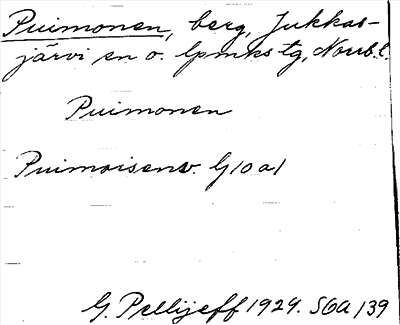 Puimonen, berg, Jukkas-
järvi sn o. lpmks tg, Norrb. l.
Puimonen
Puimoisenv. G10a1
G. Pellijeff 1929. SGA 139